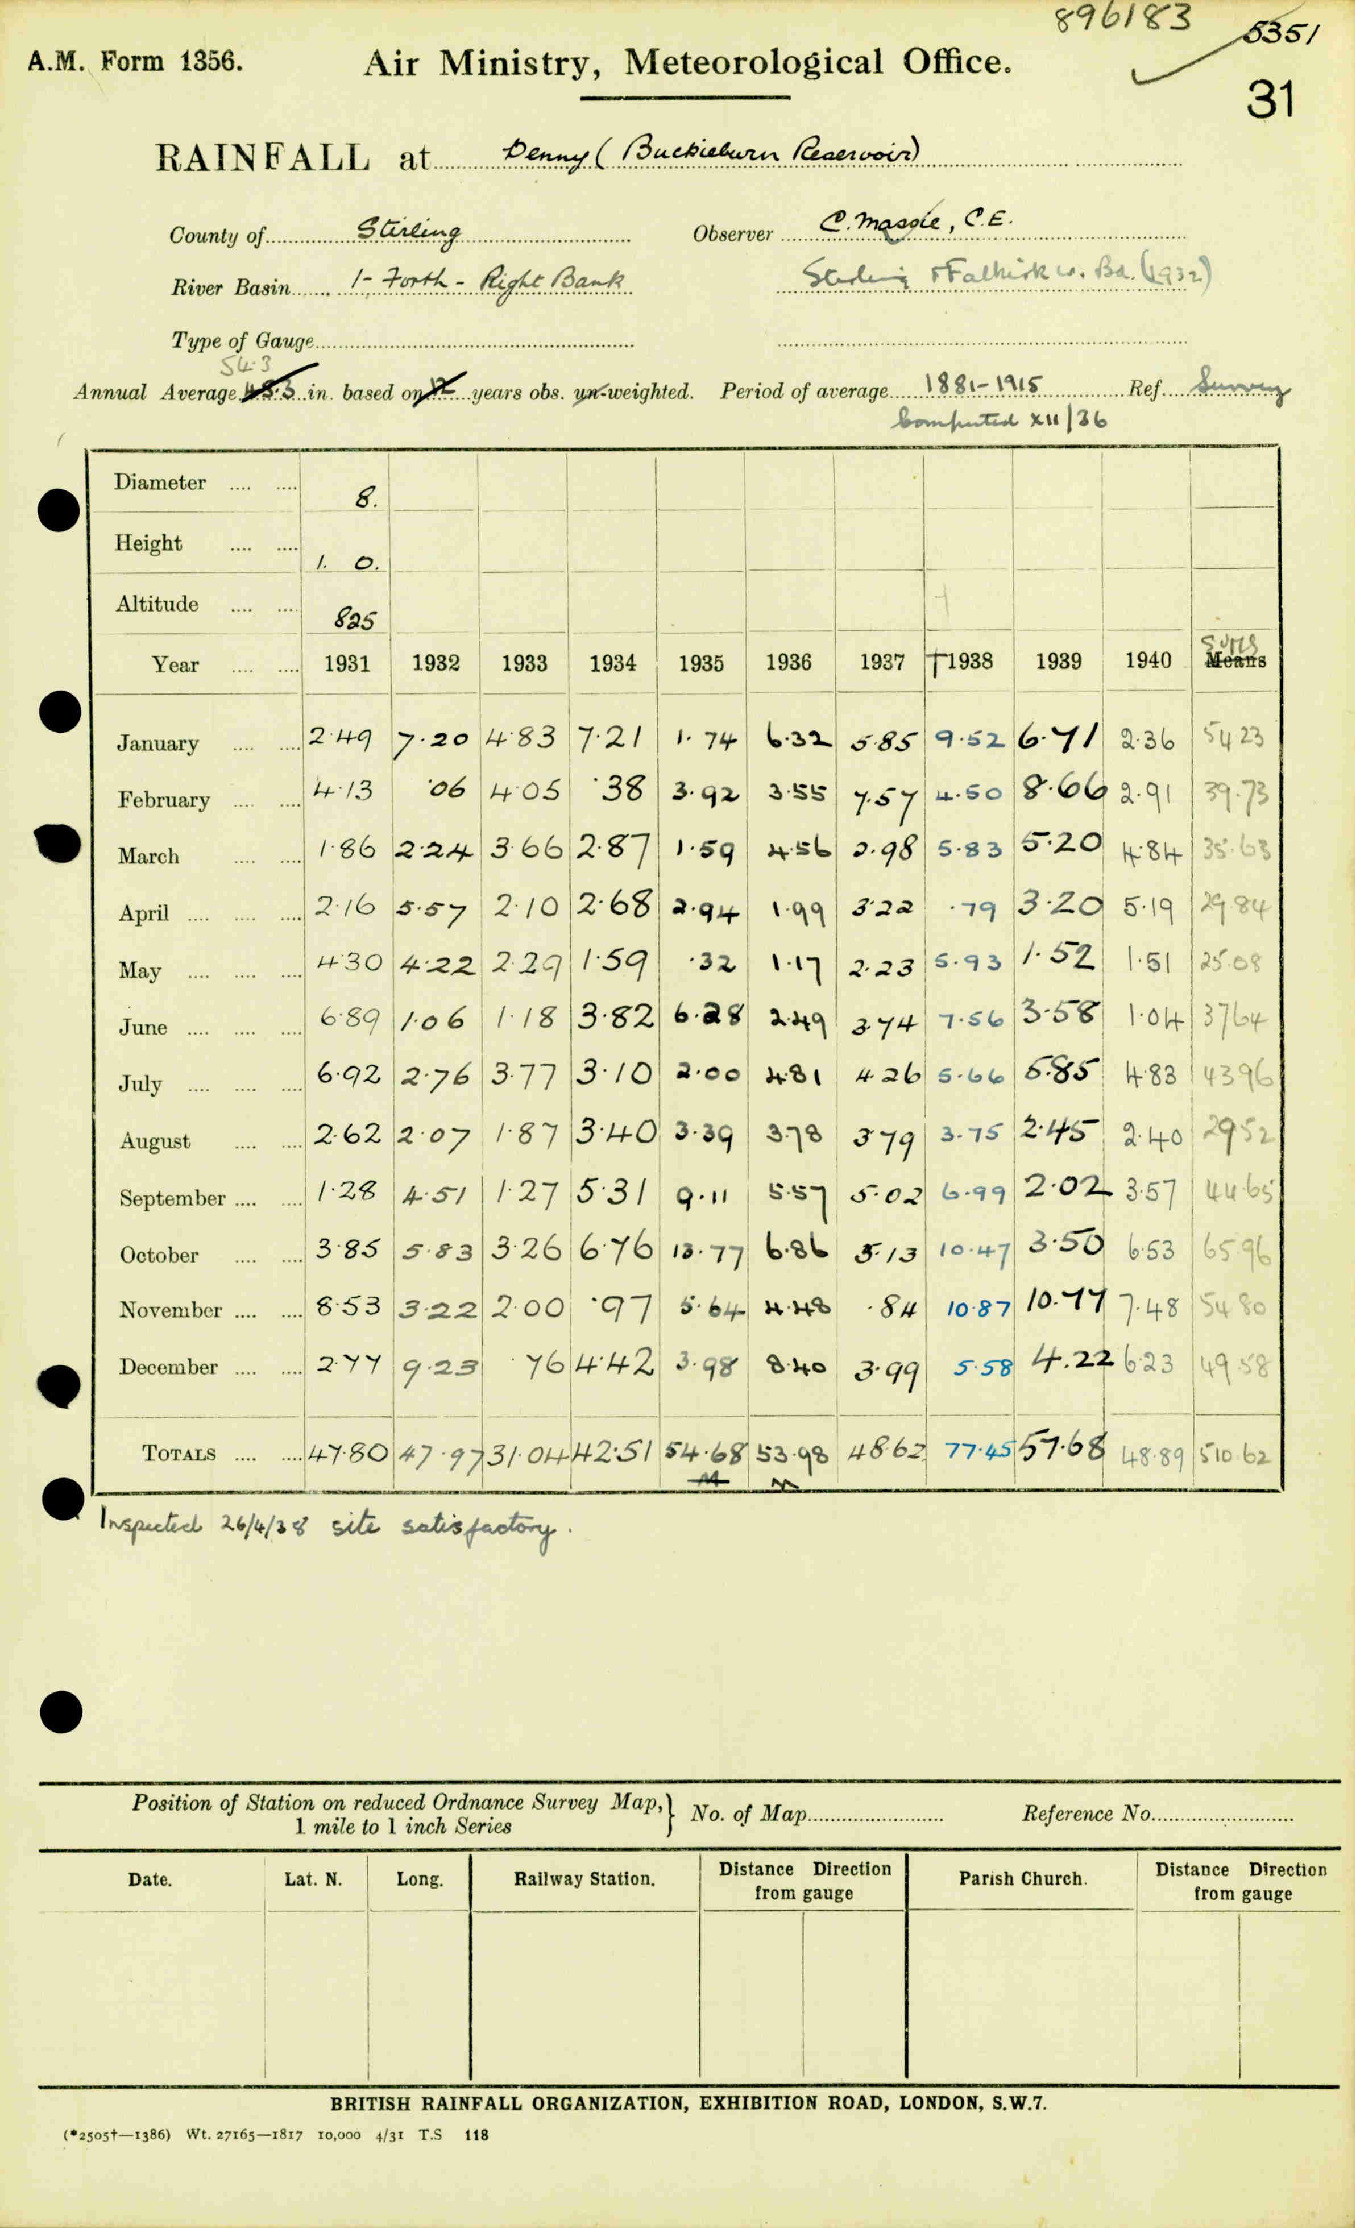 896183
5351
A.M. Form 1356. Air Ministry, Meteorological Office.
31
RAINFALL at Denny (Buckieburn Reservoir)
County of Stirling Observer C. , C.E.
River Basin 1- Forth - Right Bank Stirling & Falkirk W. Bd. (1932)
Type of Gauge
54.3
Annual Average 48.3 in. based on 12 years obs. un-weighted. Period of average 1881-1915 Ref. Survey
Computed XII/36
Diameter 8.
Height 1. 0.
Altitude 825
Sums
Year 1931 1932 1933 1934 1935 1936 1937 †1938 1939 1940 Means
January 2.49 7.20 4.83 7.21 1.74 6.32 5.85 9.52 6.71 2.36 54.23
February 4.13 .06 4.05 .38 3.92 3.55 7.57 4.50 8.66 2.91 39.73
March 1.86 2.24 3.66 2.87 1.59 4.56 2.98 5.83 5.20 4.84 35.63
April 2.16 5.57 2.10 2.68 2.94 1.99 3.22 .79 3.20 5.19 29.84
May 4.30 4.22 2.29 1.59 .32 1.17 2.23 5.93 1.52 1.51 25.08
June 6.89 1.06 1.18 3.82 6.28 2.49 3.74 7.56 3.58 1.04 37.64
July 6.92 2.76 3.77 3.10 2.00 4.81 4.26 5.66 5.85 4.83 43.96
August 2.62 2.07 1.87 3.40 3.39 3.78 3.79 3.75 2.45 2.40 29.52
September 1.28 4.51 1.27 5.31 9.11 5.57 5.02 6.99 2.02 3.57 44.65
October 3.85 5.83 3.26 6.76 13.77 6.86 5.13 10.47 3.50 6.53 65.96
November 8.53 3.22 2.00 .97 5.64 4.48 .84 10.87 10.77 7.48 54.80
December 2.77 9.23 .76 4.42 3.98 8.40 3.99 5.58 4.22 6.23 49.58
TOTALS 47.80 47.97 31.04 42.51 54.68 53.98 48.62 77.45 57.68 48.89 510.62
M M
Inspected 26/4/38 site satisfactory.
Position of Station on reduced Ordnance Survey Map, 1 mile to 1 inch Series } No. of Map Reference No.
Date. Lat. N. Long. Railway Station. Distance Direction from gauge Parish Church. Distance Direction from gauge
BRITISH RAINFALL ORGANIZATION, EXHIBITION ROAD, LONDON, S.W.7.
(*2505†—1386) Wt. 27165—1817 10,000 4/31 T.S 118